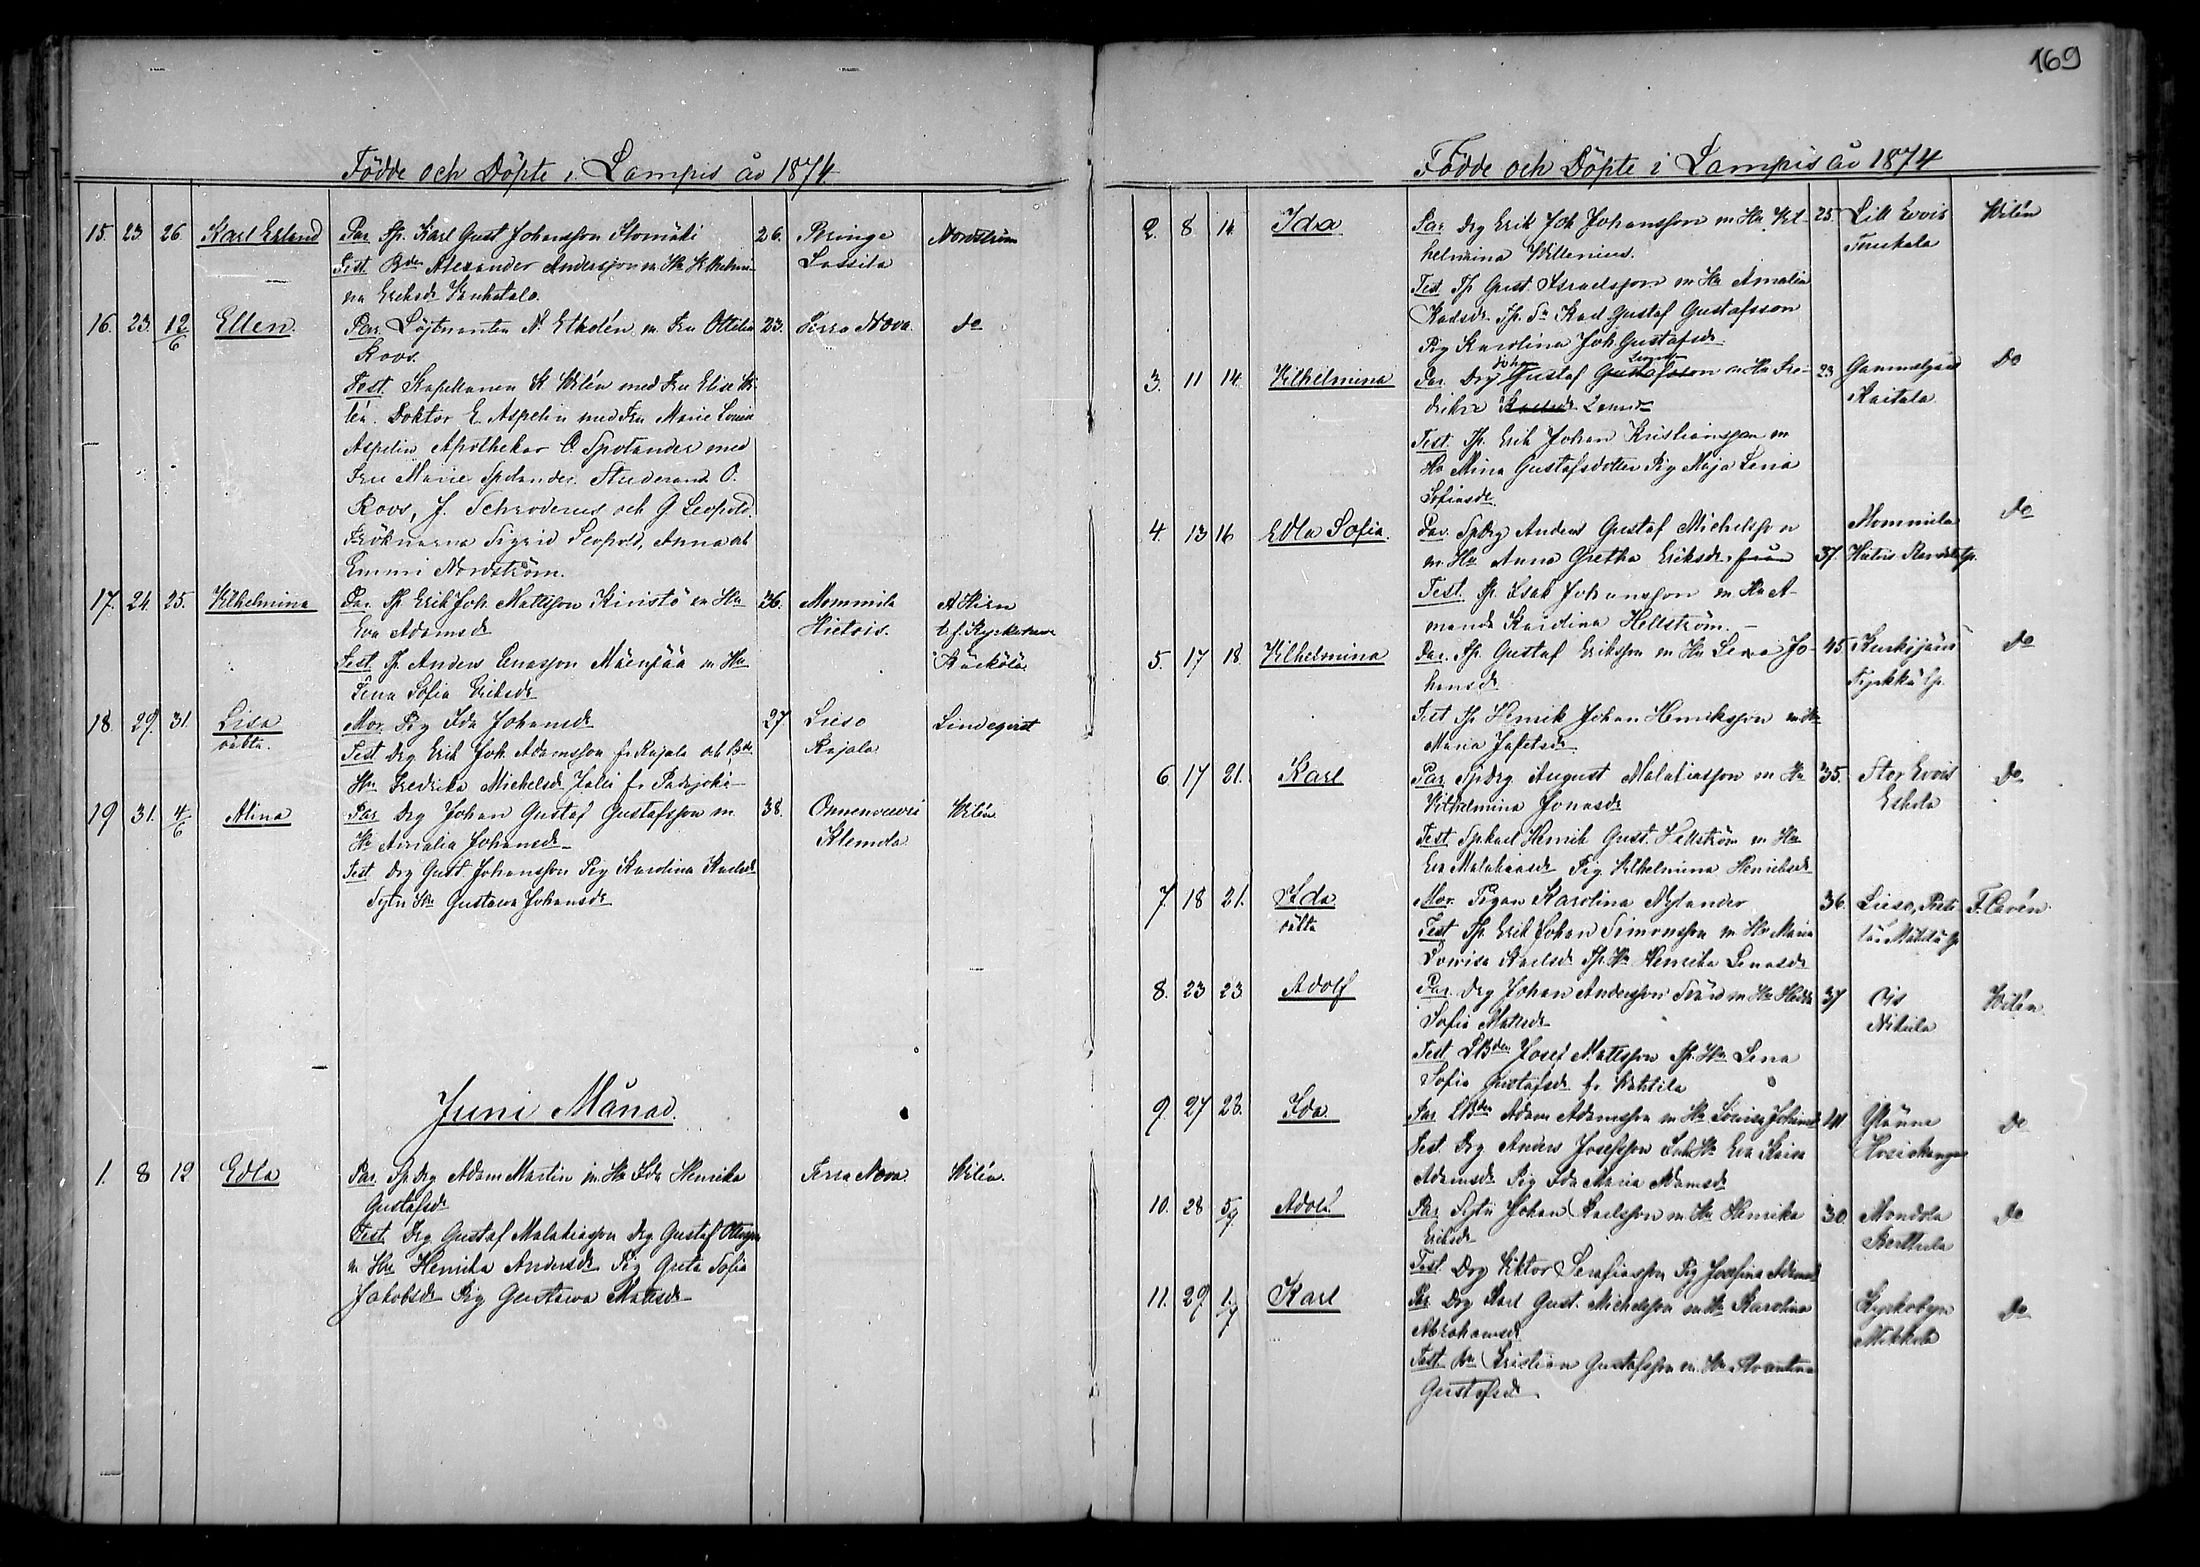 169
Födde och Döpte i Lampis år 1874.
15. 23. 26. Karl Erland Par. Sp. Karl Gust Johansson 26. Pringe Nordström
Test. Bdn Alexander Andersson m Hu Wilhelmi- Lassila
na Eriksdr
16. 23. 12/6 Ellen. Par. Löjtnanten A. Etholén m. Fru Ottilia 23. Terra Nova. do
Roos.
Test. Kapellanen K. Wilén med Fru Elise Wi-
lén. Doktor E. Aspelin med Fru Marie Louise
Aspelin Apothekar O. Spolander med
Fru Marie Spolander. Studerand O.
Roos, J. Schroderus och G Leopold.
Fröknarna Sigrid Leopold, Anna och
Emmi Nordström.
17. 24. 25. Wilhelmina Par. Sp. Erik Joh. Mattsson Kivistö m Hu 36. Mommila A Hirn
Eva Adamsdr Hietois. t.f. Kyrkoherde
Test. Sp Anders Enasson Mäenpää m Hu Kärkölä
Lena Sofia Eriksdr
18. 29. 31. Lisa Mor. Pig Ida Johansdr 27 Lieso Lindeqvist
oäkta. Test Drg Erik Joh. Adamsson fr Rajala och Bdr Rajala
Hu Fredrika Michelsdr fr Padasjoki
19 31. 4/6 Alina Par. Drg Johan Gustaf Gustafsson m 38. Onnenvuori Wilén
Hu Amalia Johansdr Klemola
Test. Drg Gust. Johansson Pig Karolina Karlsdr
Sytn Hu Gustava Johansdr
Juni Månad.
1. 8 12 Edla Par. Sp Drg Adam Martin m Hu Ida Henrika Terra Nova Wilén
Gustafsdr
Test. Drg Gustaf Malakiasson Drg Gustaf Ottosson
m Hu Henrika Andersdr Pig Greta Sofia
Jakobsdr Pig Gustava Mattsdr
Födde och Döpte i Lampis år 1874
2. 8 14 Ida Par Drg Erik Joh Johansson m Hu Wil- 25 Lill Evois Wilén
helmina Willenius.
Test. Sp Gust. Israelsson m Hu Amalia
Karlsdr Sp. Sn Karl Gustaf Gustafsson
Pig Karolina Joh Gustafsdr
3. 11 14. Wilhelmina Par. Drg Johan Gustaf Gustafsson m Hu Fre- 23 Gammelgård Do
drika Karlsdr Kaitala
Test. Sp. Erik Johan Kristiansson m
Hu Mina Gustafsdotter Pig Maja Lena
Sofiasdr
4. 13 16 Edla Sofia. Par. SpDrg Anders Gustaf Michelsson Mommila do
m. Hu Anna Gretha Eriksdr från 37.
Test. Sp. Isak Johansson m Hu A-
manda Karolina Hellström.
5. 17 18. Wilhelmina Par. Sp. Gustaf Eriksson m Hu Lena Jo- 45 do
hansdr
Test Sp Henrik Johan Henriksson m Hu
Maria Jafetsdr
6 17 21. Karl Par SpDrg August Malakiasson m Hu 35. Stor Evois Do
Wilhelmina Jonasdr Eskola
Test Spkarl Henrik Gust. Hellström m Hu
Eva Malakiasdr Pig Wilhelmina Henriksdr
7 18 21. Ida Mor. Pigan Karolina Nylander 36. Lieso, F. Lavén.
oäkta Test Sp. Erik Johan Simonsson m Hu Maria
Lovisa Karlsdr Sp Hu Henrika Lenasdr
8. 23 23 Adolf Par. Drg Johan Andersson Svärd m Hu Hedda 37 Ois Wilén
Sofia Mattsdr Nikula
Test LBden Josef Mattsson Sp. Hu Lena
Sofia Gustafsdr
9. 27 28. Ida Par LBdn Adam Adamsson m Hu Lovisa Johansdr 41 do
Test. Drg Anders Josefsson Hu Eva Kaisa
Adamsdr Pig Ida Maria Adamsdr
10. 28 5/7 Adolf Par Sytn Johan Karlsson m Hu Henrika 30. do
Eriksdr Perttula
Test Drg Viktor Serafiasson Pig Josefina Adamsdr
11. 29 1/7 Karl Par. Drg Karl Gust. Michelsson m Hu Karolina Kyrkobyn do
Abrahamsdr Mikkola
Test Bn Kristian Gustafsson m Hu
Gustafsdr